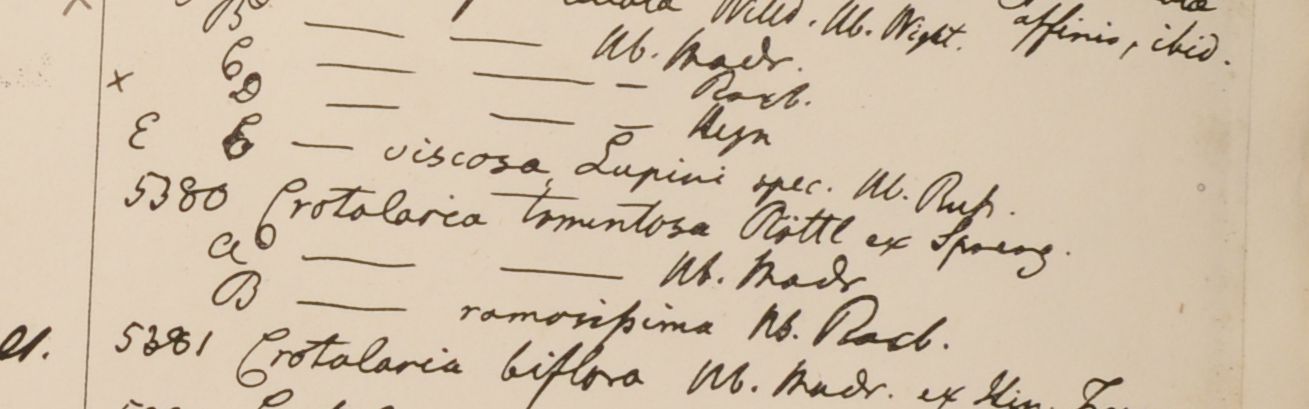 Willd. Hb. Wight. affinis, ibid.
B — — Hb. Madr.
x C — — — Roxb.
D — — — Heyn
E E — viscosa, Lupini spec. Hb. Russ.
5380 Crotalaria tomentosa Röttl ex Spreng.
a — — Hb. Madr
B — ramosissima Hb. Roxb.
5381 Crotalaria biflora Hb. Madr. ex Hin.